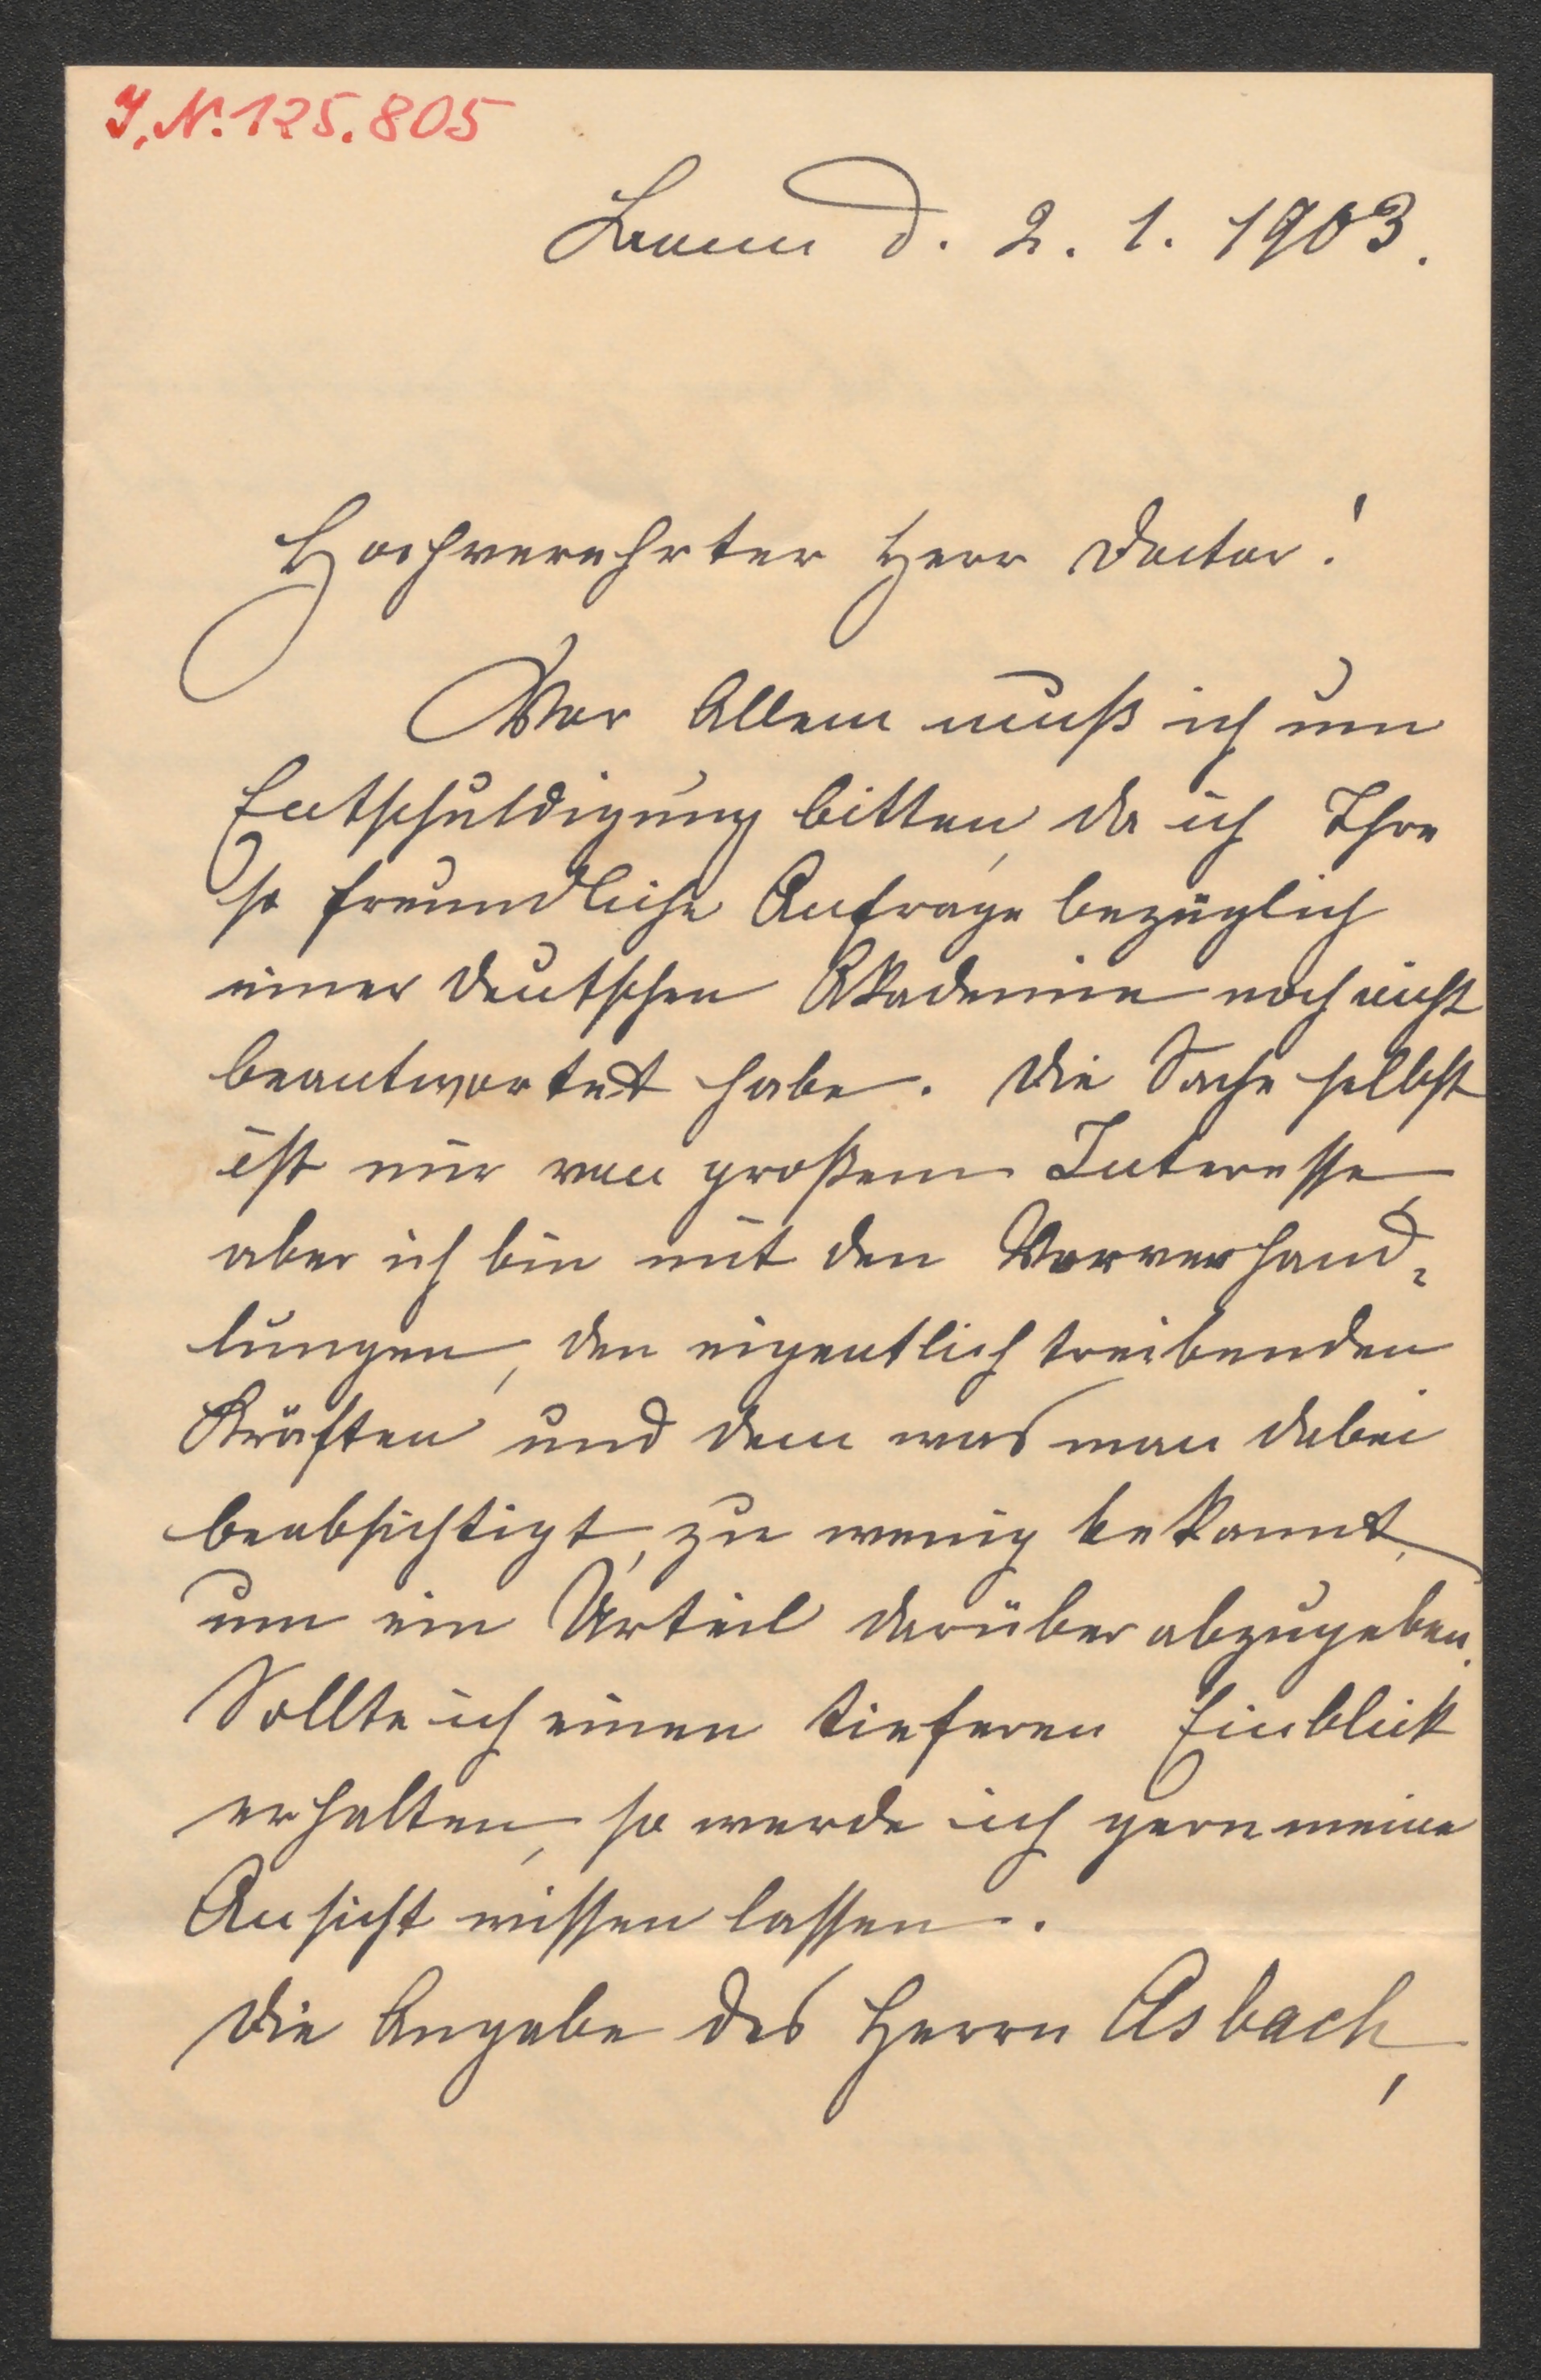 J.N. 125.805
d. 2. 1. 1903.
Hochverehrter Herr Doctor!
Vor Allem muß ich um
Entschuldigung bitten, da ich Ihre
so freundliche Anfrage bezüglich
einer deutschen Akademie noch nicht
beantwortet habe. Die Sache selbst
ist mir von großem Interesse,
aber ich bin mit den Vorverhand-
lungen, den eigentlich treibenden
Kräften und dem was man dabei
beabsichtigt, zu wenig bekannt,
um ein Urteil darüber abzugeben.
Sollte ich einen tieferen Einblick
erhalten, so werde ich gern meine
Ansicht wissen lassen.
Die Angabe des Herrn Asbach,